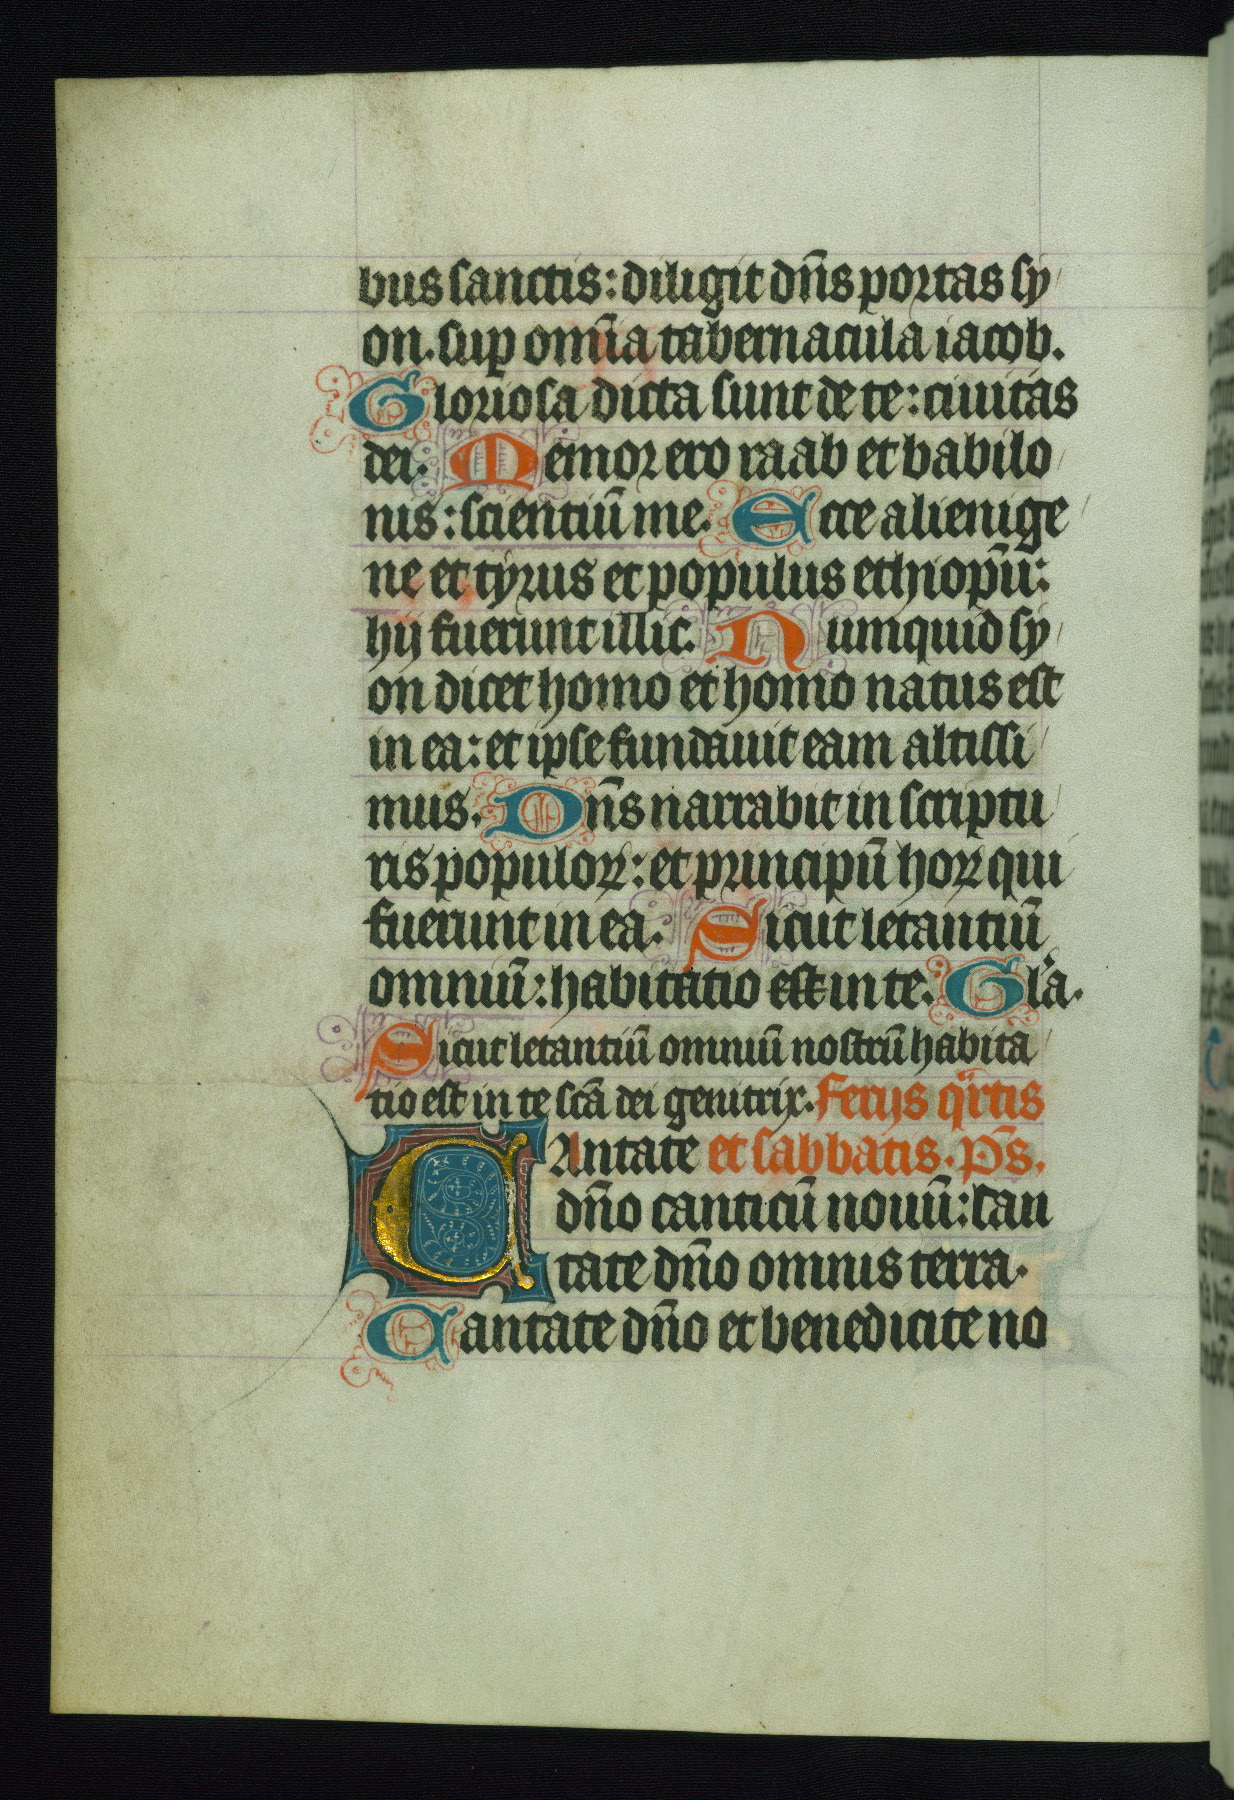 bus sanctis: diligit dñs portas sy
on. sup om̄ia tabernacula iacob.
Gloriosa dicta sunt de te: ciuitas
dei. Memor ero raab et babilo
nis: scientiū me. Ecce alienige
ne et tyrus et populus ethiopū:
hij fuerunt illic. Numquid sy
on dicet homo et homo natus est
in ea: et ipse fundauit eam altissi
mus. Dñs narrabit in scriptu
ris populoꝝ: et principū hoꝝ qui
fuerunt in ea. Sicut letantiū
omniū: habitatio est in te. Gl'a.
Sicut letantiū omniū nostrū habita
tio est in te scā dei genitrix. Ferijs qᷓrtis
CAntate et sabbatis. p̄s.
dño canticū nouū: can
tate dño omnis terra.
Cantate dño et benedicite no